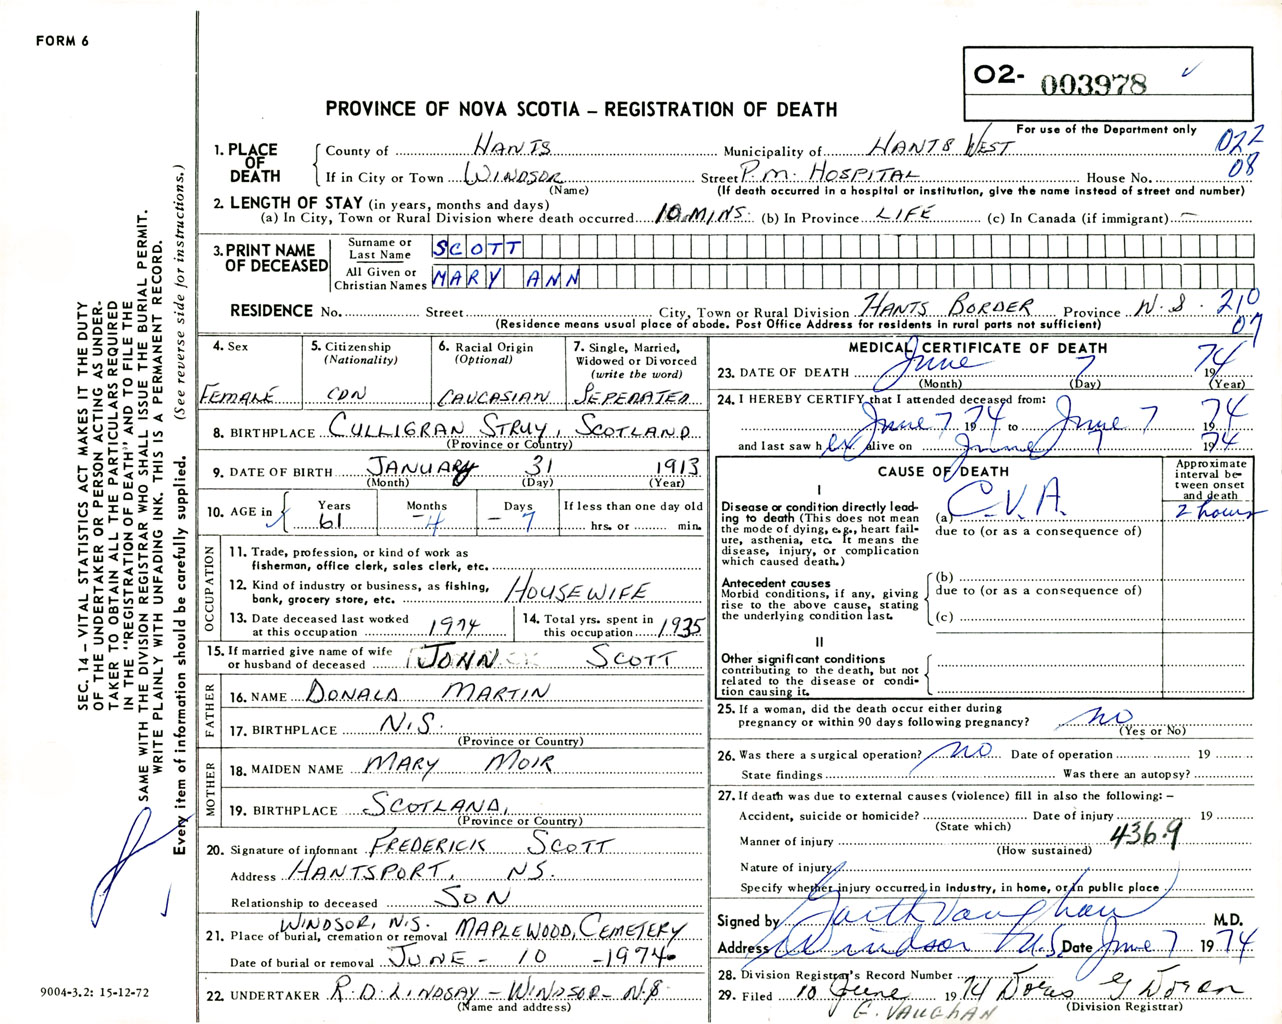 FORM 6
02- 003978
PROVINCE OF NOVA SCOTIA – REGISTRATION OF DEATH
For use of the Department only
022
08
1. PLACE OF DEATH
County of HANTS Municipality of HANTS WEST
If in City or Town WINDSOR Street P.M. HOSPITAL House No.
(Name) (If death occurred in a hospital or institution, give the name instead of street and number)
2. LENGTH OF STAY (in years, months and days)
(a) In City, Town or Rural Division where death occurred 10 MINS. (b) In Province LIFE (c) In Canada (if immigrant) –
3. PRINT NAME OF DECEASED
Surname or Last Name SCOTT
All Given or Christian Names MARY ANN
RESIDENCE No. Street City, Town or Rural Division HANTS BORDER Province N.S. 210
07
(Residence means usual place of abode. Post Office Address for residents in rural parts not sufficient)
4. Sex
FEMALE
5. Citizenship
(Nationality)
CDN
6. Racial Origin
(Optional)
CAUCASIAN
7. Single, Married,
Widowed or Divorced
(write the word)
SEPERATED
8. BIRTHPLACE CULLIGRAN STRUY, SCOTLAND
(Province or Country)
9. DATE OF BIRTH JANUARY 31 1913
(Month) (Day) (Year)
10. AGE in
Years 61
Months -4
Days -7
If less than one day old
hrs. or min.
OCCUPATION
11. Trade, profession, or kind of work as
fisherman, office clerk, sales clerk, etc.
12. Kind of industry or business, as fishing,
bank, grocery store, etc. HOUSEWIFE
13. Date deceased last worked
at this occupation 1974
14. Total yrs. spent in
this occupation 1935
15. If married give name of wife
or husband of deceased JOHN SCOTT
FATHER
16. NAME DONALD MARTIN
17. BIRTHPLACE N.S.
(Province or Country)
MOTHER
18. MAIDEN NAME MARY MOIR
19. BIRTHPLACE SCOTLAND,
(Province or Country)
20. Signature of informant FREDERICK SCOTT
Address HANTSPORT, NS.
Relationship to deceased SON
WINDSOR, N.S.
21. Place of burial, cremation or removal MAPLEWOOD, CEMETERY
Date of burial or removal JUNE – 10 – 1974
22. UNDERTAKER R.D. LINDSAY – WINDSOR – N.S
(Name and address)
MEDICAL CERTIFICATE OF DEATH
23. DATE OF DEATH June 7 1974
(Month) (Day) (Year)
24. I HEREBY CERTIFY that I attended deceased from:
June 7 1974 to June 7 1974
and last saw her alive on June 7 1974
CAUSE OF DEATH
Approximate
interval be-
tween onset
and death
I
Disease or condition directly lead-
ing to death (This does not mean
the mode of dying, e.g., heart fail-
ure, asthenia, etc. It means the
disease, injury, or complication
which caused death.)
(a) C.V.A. 2 hours
due to (or as a consequence of)
Antecedent causes
Morbid conditions, if any, giving
rise to the above cause, stating
the underlying condition last.
(b)
due to (or as a consequence of)
(c)
II
Other significant conditions
contributing to the death, but not
related to the disease or condi-
tion causing it.
25. If a woman, did the death occur either during
pregnancy or within 90 days following pregnancy? no
(Yes or No)
26. Was there a surgical operation? no Date of operation 19
State findings Was there an autopsy?
27. If death was due to external causes (violence) fill in also the following: –
Accident, suicide or homicide? Date of injury 19
(State which)
Manner of injury 436.9
(How sustained)
Nature of injury
Specify whether injury occurred in industry, in home, or in public place
Signed by Garth Vaughan M.D.
Address Windsor N.S. Date June 7 1974
28. Division Registrar's Record Number
29. Filed 10 June 1974 Doris G Doran
(Division Registrar)
G. VAUGHAN
SEC. 14 – VITAL STATISTICS ACT MAKES IT THE DUTY
OF THE UNDERTAKER OR PERSON ACTING AS UNDER-
TAKER TO OBTAIN ALL THE PARTICULARS REQUIRED
IN THE "REGISTRATION OF DEATH" AND TO FILE THE
SAME WITH THE DIVISION REGISTRAR WHO SHALL ISSUE THE BURIAL PERMIT.
WRITE PLAINLY WITH UNFADING INK. THIS IS A PERMANENT RECORD.
Every item of information should be carefully supplied. (See reverse side for instructions.)
9004-3.2: 15-12-72